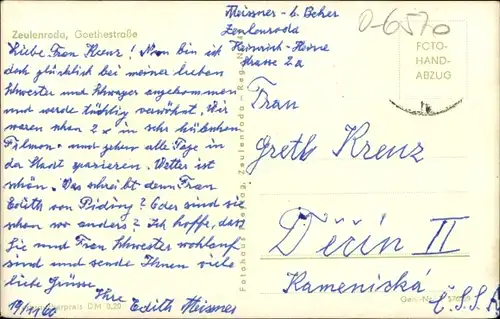 Zeulenroda, Goethestraße
Liebe Frau Krenz! Nun bin ich
doch glücklich bei meiner lieben
Schwester und Schwager angekommen
und werde tüchtig verwöhnt. Wir
waren schon 2x in sehr hübschen
Filmen und gehen alle Tage in
der Stadt spazieren. Wetter ist
schön. Was schreibt denn Frau
Edith von Piding? Oder sind sie
schon wo anders? Ich hoffe, dass
Sie und Frau Schwester wohlauf
sind und sende Ihnen viele
liebe Grüsse
Ihre Edith Meissner
19/11/60
Verbraucherpreis DM 0,20
Meissner - b. Beher
Zeulenroda
Heinrich-Heine
Strasse 2a
Zeulenroda - Reg.
0-6570
FOTO-
HAND-
ABZUG
Frau
Greth Krenz
Děčín II
Kamenická
Č.S.R.
Gen.-Nr.